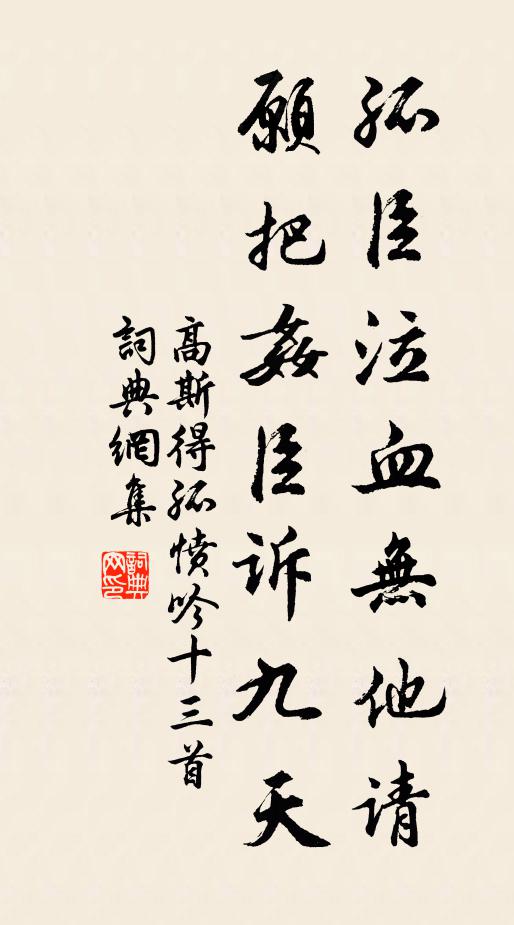 孤臣泣血無他请
願把姦臣訴九天
高斯得孤憤吟十三首
詞典網集
詞典
网印